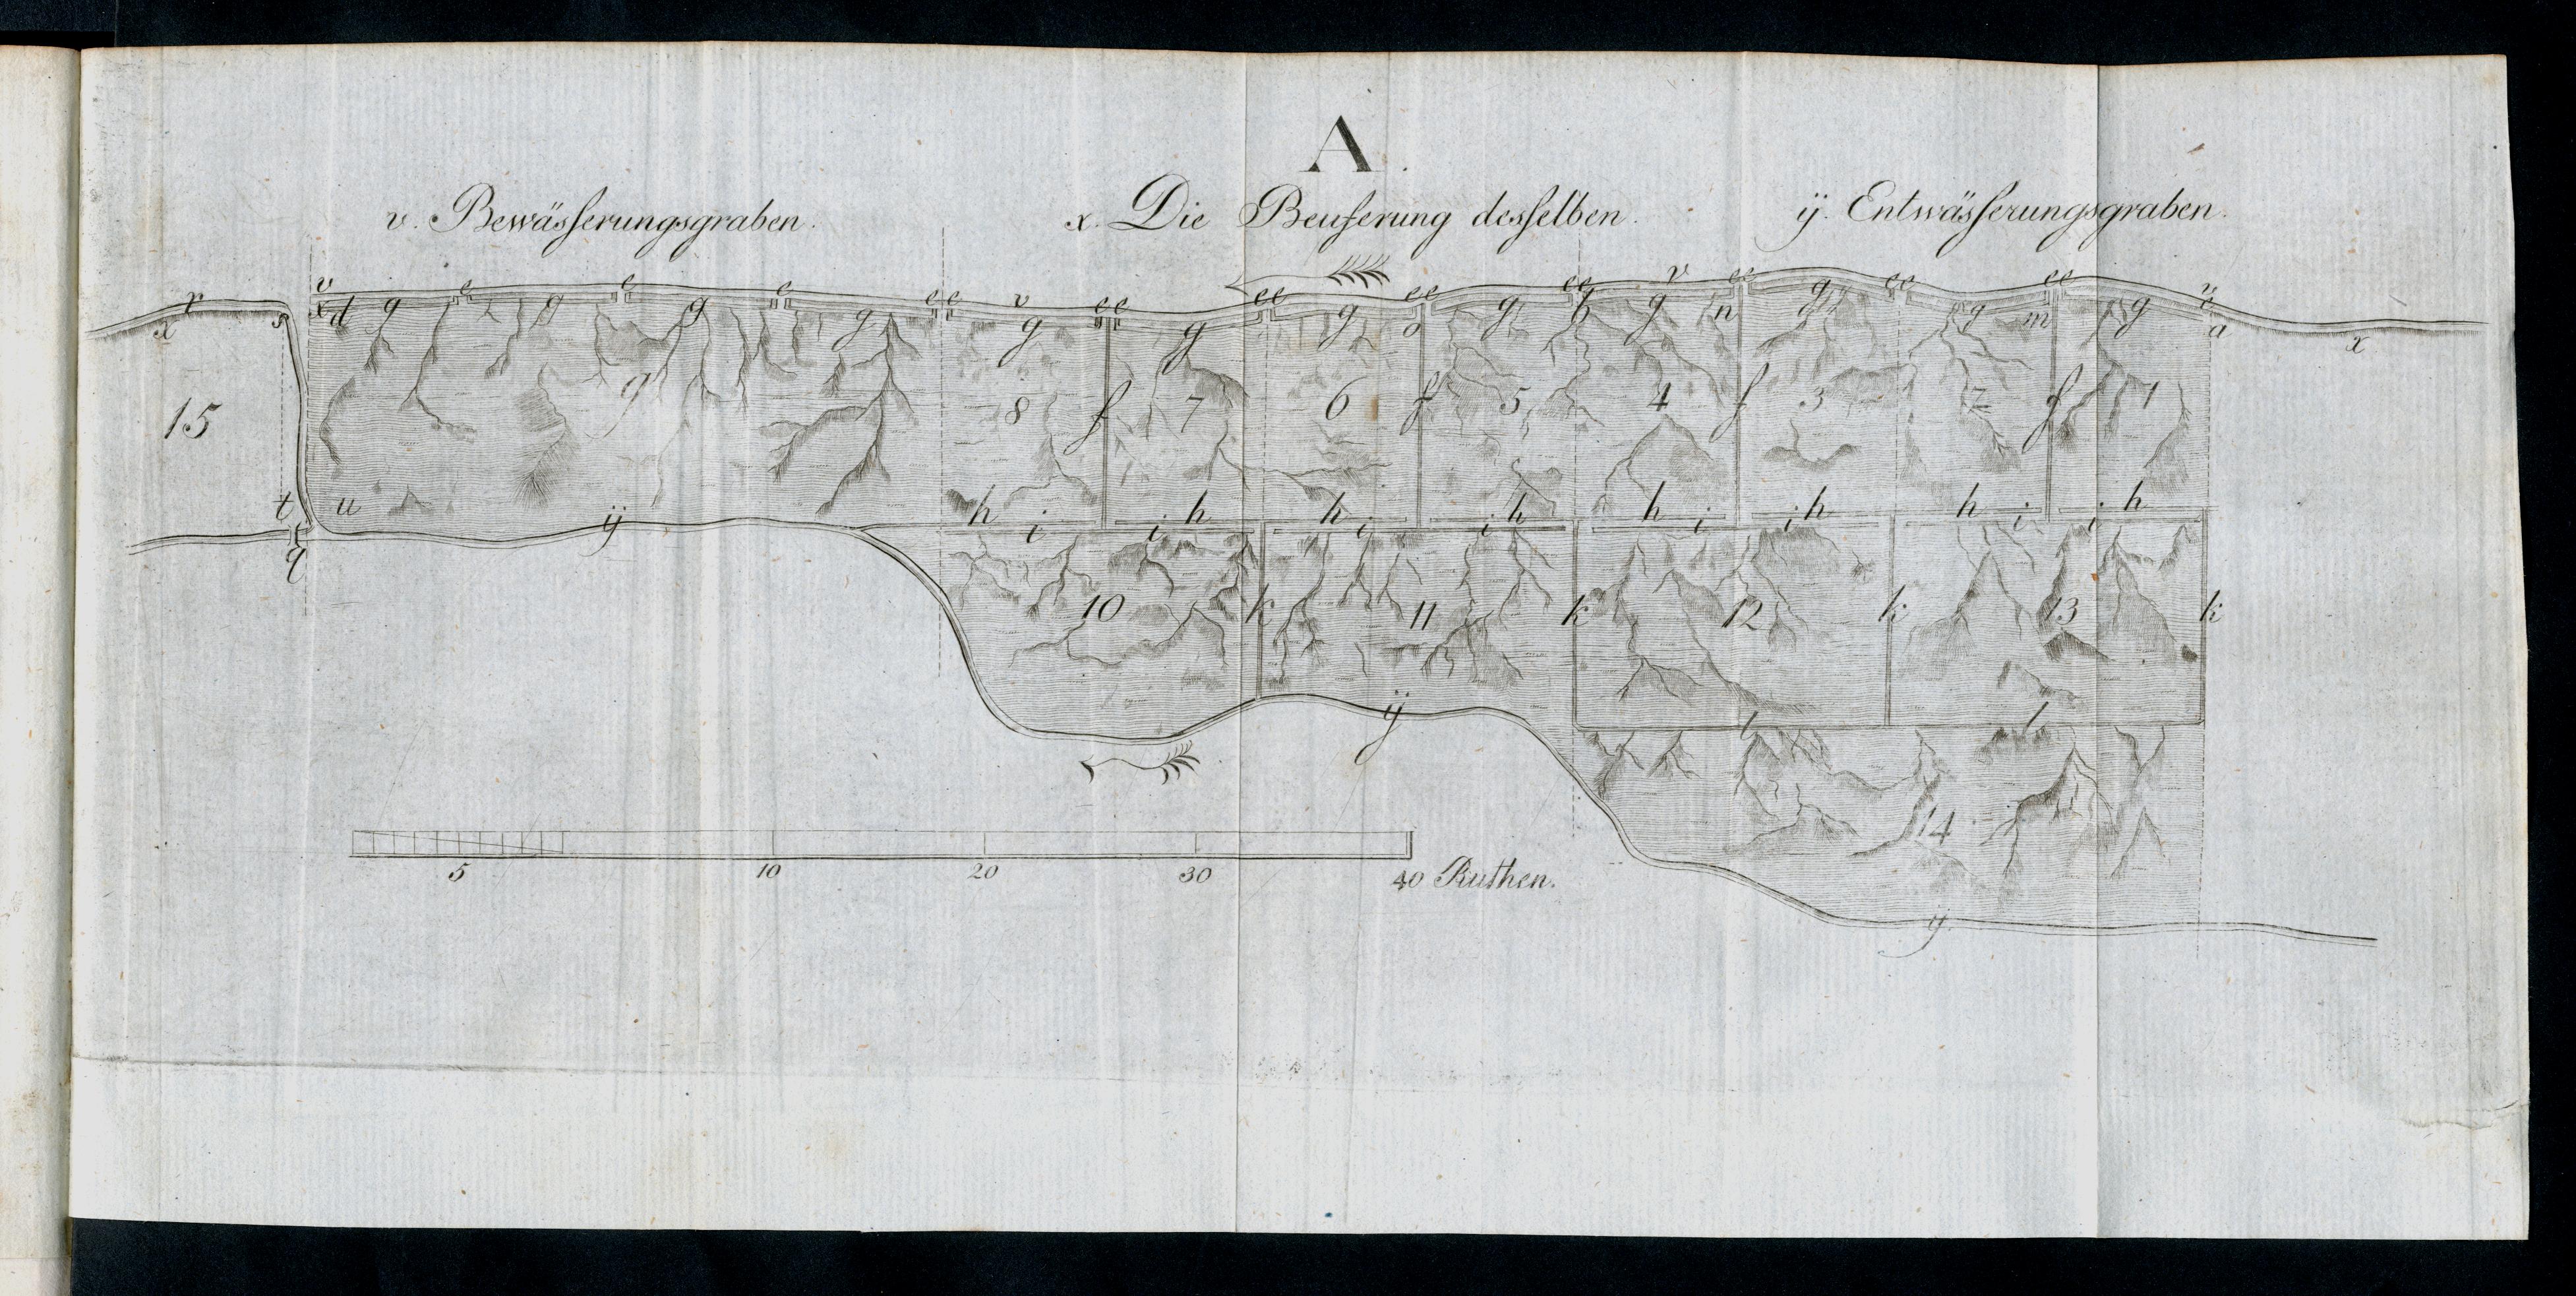 A.
v. Bewässerungsgraben. x. Die Beuferung desselben. ÿ. Entwässerungsgraben.
v e e e e e v e e e e e e e e e e v e e e e e e
x d g g g g g g g g g g n g g m g a
x s o x
15 8 f 7 6 f 5 4 f 3 2 f 1
t u ÿ h h h h h h h h
i i i i i i i i
q
10 k 11 k 12 k 13 k
ÿ l l
14
ÿ
5 10 20 30 40 Ruthen.